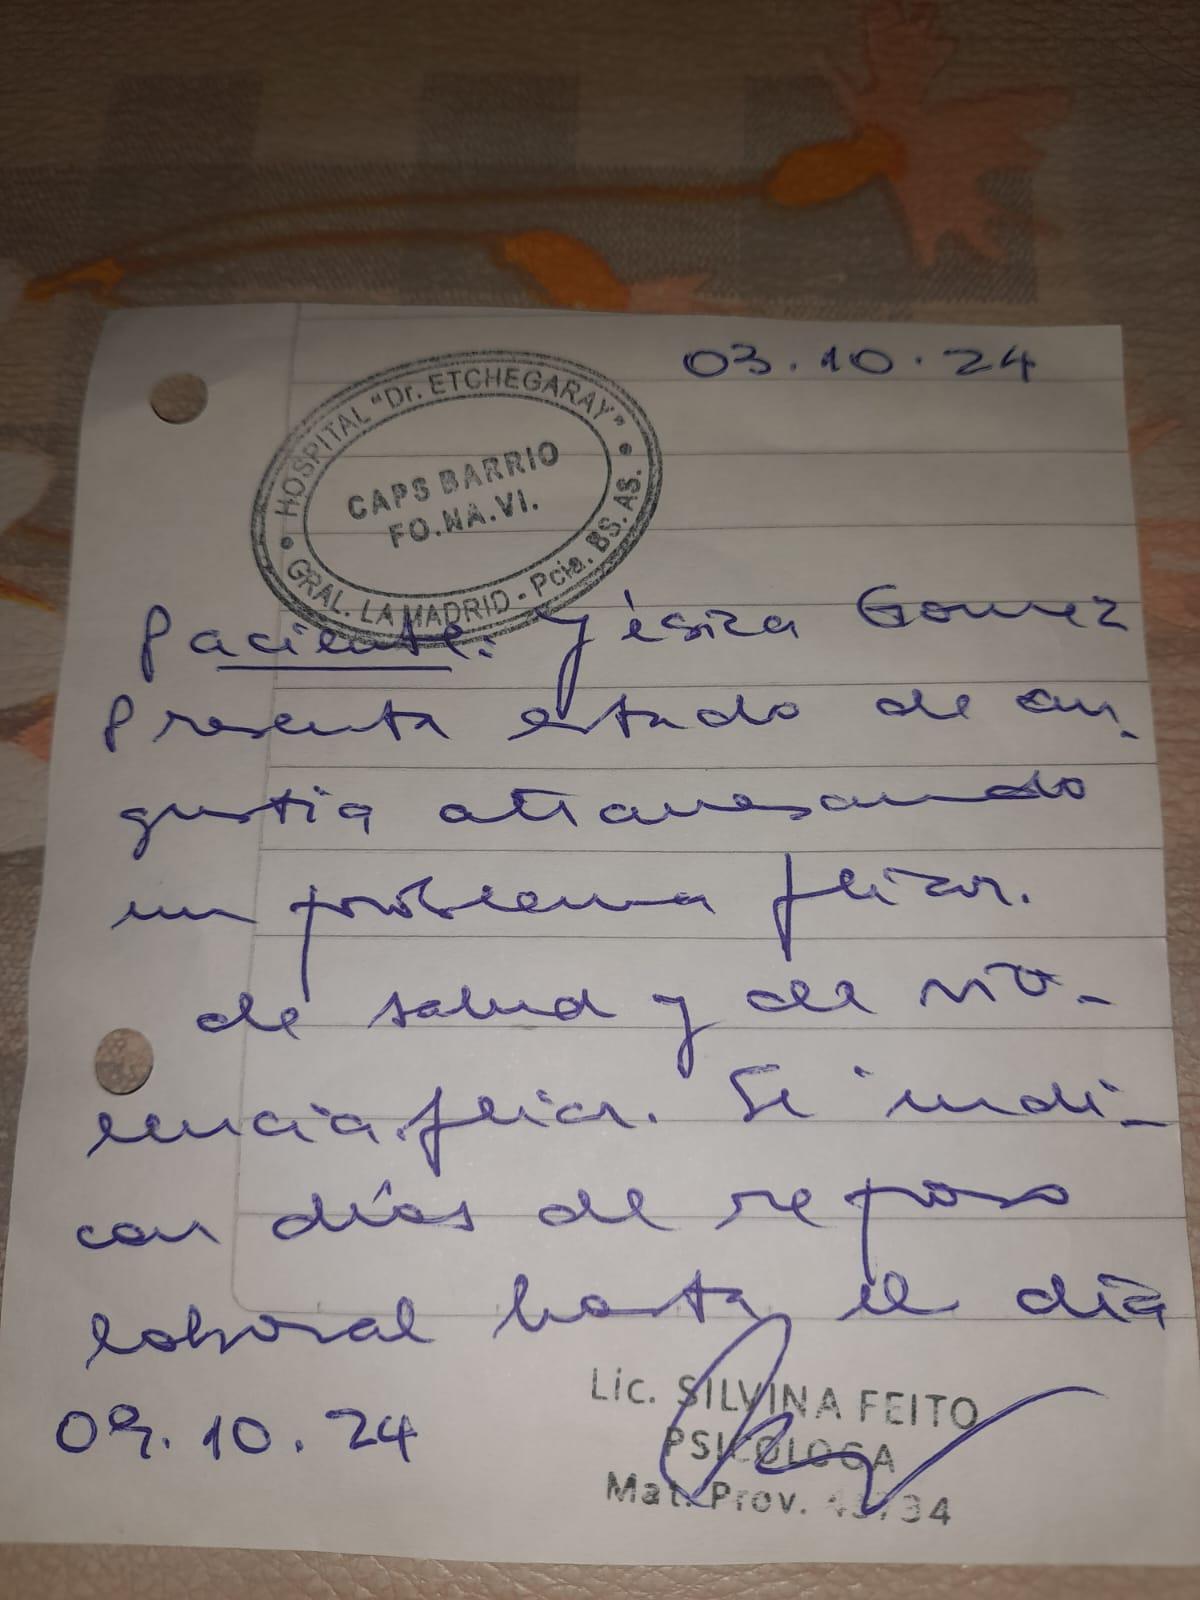 03.10.24
HOSPITAL "Dr. ETCHEGARAY"
CAPS BARRIO
FO.NA.VI.
GRAL. LA MADRID - Pcia. BS. AS.
Paciente: Yésica Gomez
Presenta estado de an-
gustia atravesando
un problema
de salud y de vio-
lencia. Se indi-
can días de reposo
laboral hasta el día
09.10.24
Lic. SILVINA FEITO
PSICOLOGA
Mat. Prov.